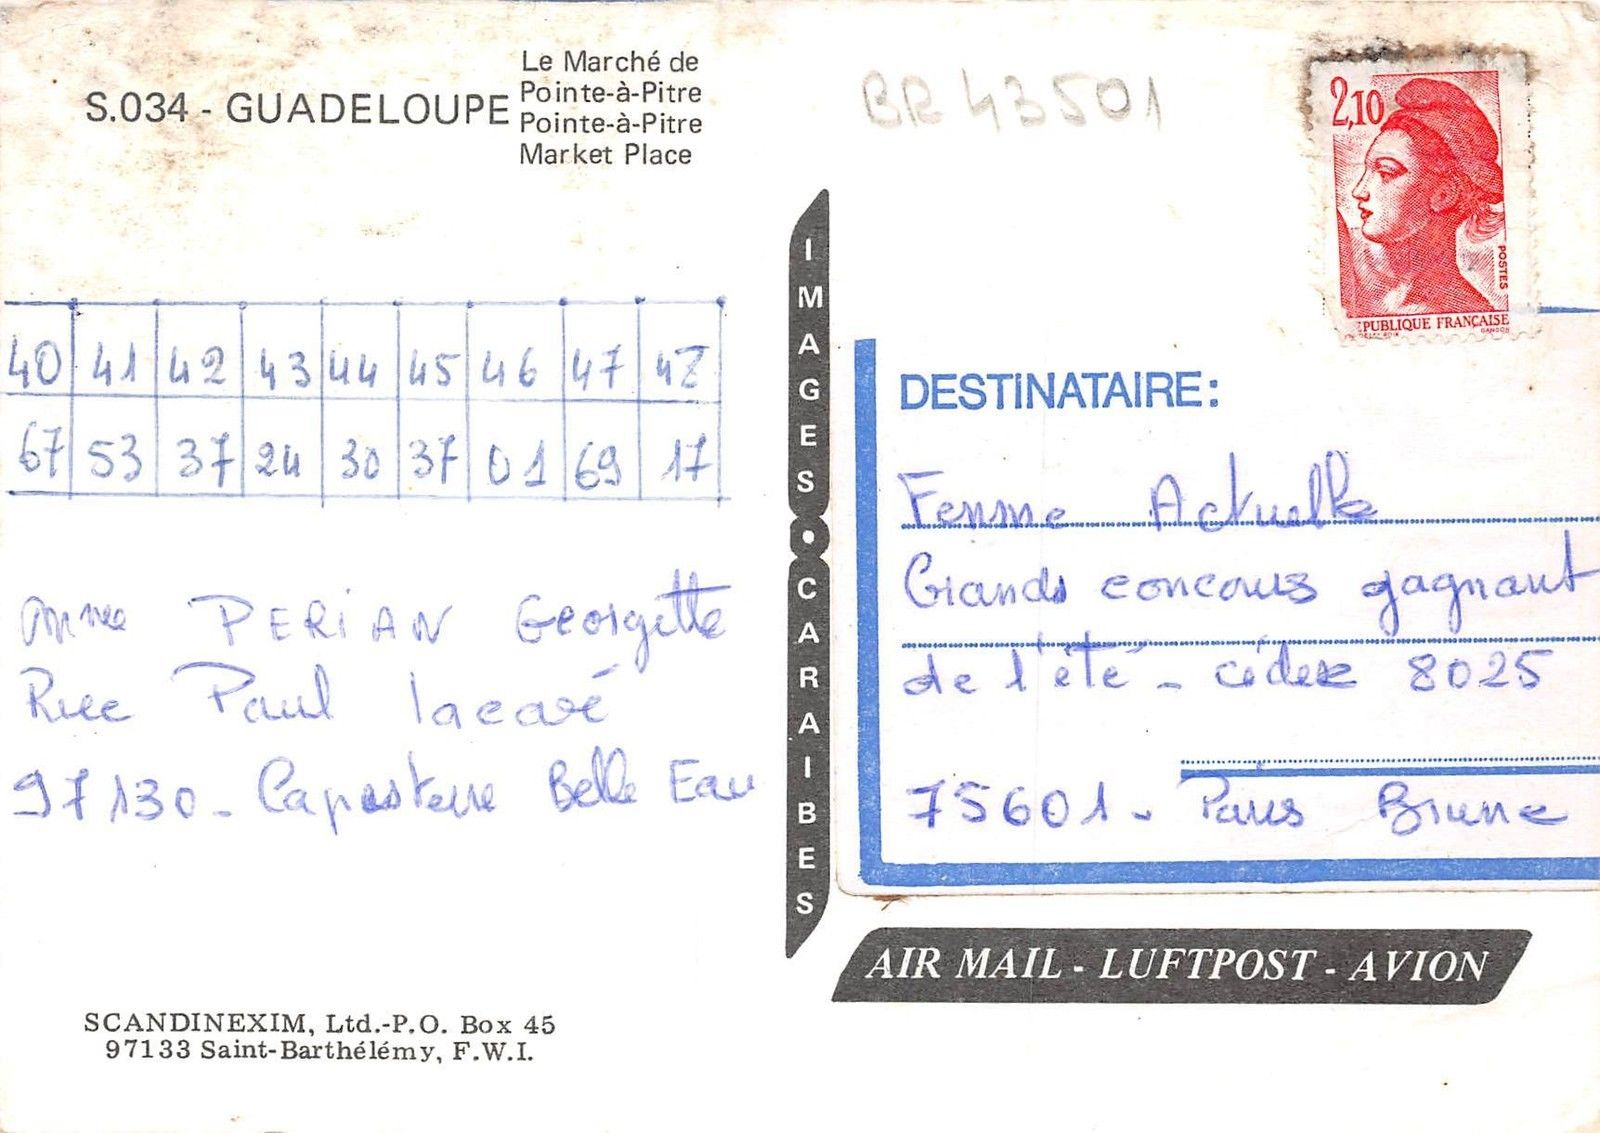 S.034 - GUADELOUPE
Le Marché de
Pointe-à-Pitre
Pointe-à-Pitre
Market Place
40 41 42 43 44 45 46 47 48
67 53 37 24 30 37 01 69 17
Mme PERIAN Georgette
Rue Paul lacavé
97130 - Capesterre Belle Eau
SCANDINEXIM, Ltd.-P.O. Box 45
97133 Saint-Barthélémy, F.W.I.
IMAGES • CARAIBES
BR 43501
2,10
POSTES
EPUBLIQUE FRANÇAISE
GANDON
DESTINATAIRE:
Femme Actuelle
Grands concours gagnant
de l'été - cédex 8025
75601 - Paris Brune
AIR MAIL - LUFTPOST - AVION